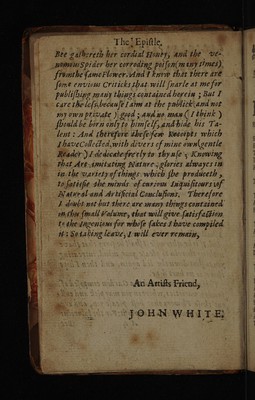 The Epistle.
Bee gathereth her cordial Honey, and the ve-
nomous Spider her corroding poison (many times)
from the same Flower. And I know that there are
some envious Criticks that will snarle at me for
publishing many things contained herein; But I
care the less, because I aim at the publick, and not
my own private good; and no man (I think)
should be born only to himself, and hide his Ta-
lent: And therefore these few Receipts which
I have Collected, with divers of mine own (gentle
Reader) I dedicate freely to thy use; Knowing
that Art imitating Nature, glories always in
in the variety of things which she produceth,
to satisfie the minds of curious Inquisitours of
Natural and Artificial Conclusions. Therefore
I doubt not but there are many things contained
in this small Volume, that will give satisfaction
to the Ingenious for whose sakes I have compiled
it: So taking leave, I will ever remain,
An Artists Friend,
JOHN WHITE.